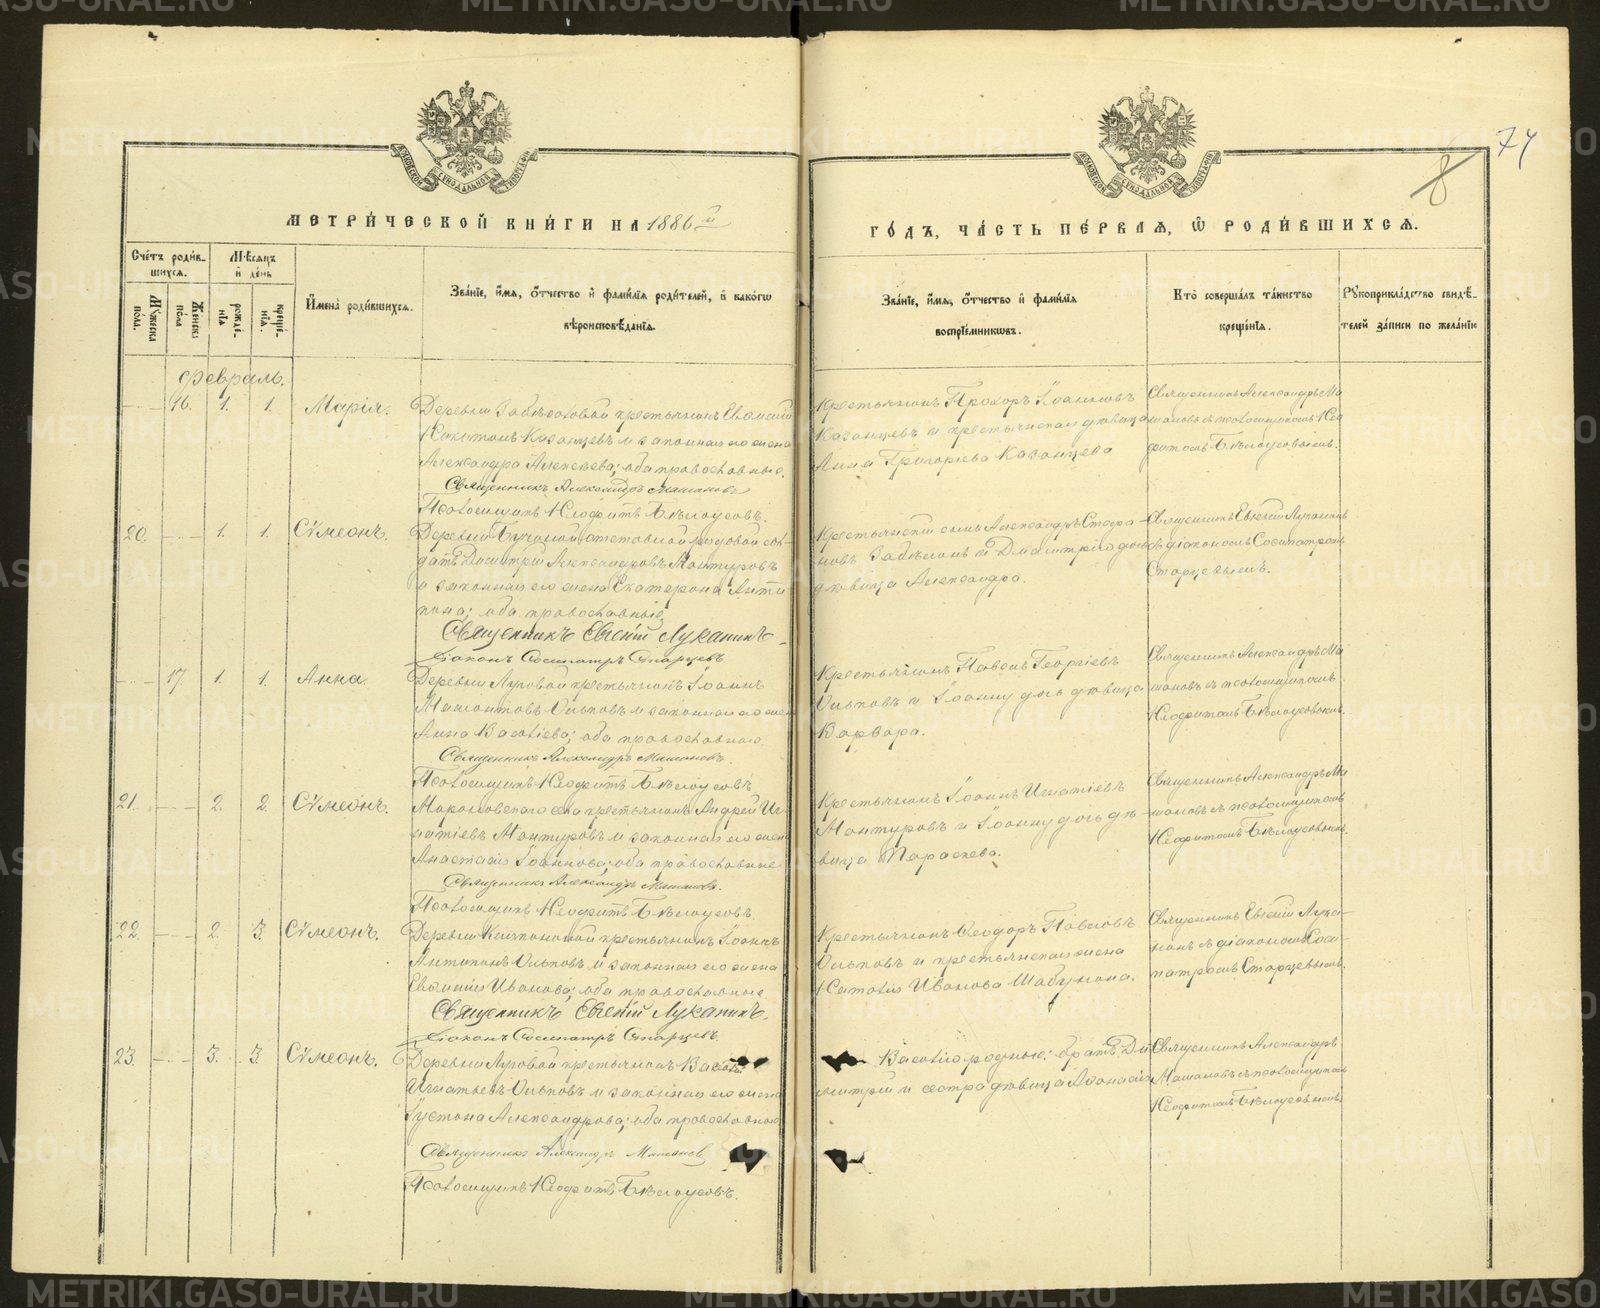 METRIKI.GASO-URAL.RU
74
8
МОСКОВСКОЙ СУНОДАЛЬНОЙ ТИПОГРАФІИ
МЕТРИ́ЧЕСКОЙ КНИ́ГИ НА 1886й
ГО́ДЪ, ЧА́СТЬ ПЕ́РВАЯ, Ѡ҆ РОДИ́ВШИХСЯ.
Сче́тъ роди́в-
шихся.
Мѣ́сяцъ
и҆ де́нь
Мꙋ́жеска по́ла.
Же́нска по́ла
рожде́-
нїя
креще́-
нїя.
И҆мена̀ роди́вшихся.
Зва́нїе, и҆́мя, ѻ҆́тчество и҆ фами́лїя роди́телей, и҆ како́гѡ
вѣроисповѣ́данїя.
Зва́нїе, и҆́мя, ѻ҆́тчество и҆ фами́лїя
воспрїе́мникѡвъ.
Кто̀ соверша́лъ та́инство
креще́нїя.
Рꙋкоприкла́дство свидѣ́-
телей за́писи по жела́нїю
Февраль.
16. 1. 1. Марія.
Деревни Забѣловой крестьянинъ Евѳимій
Никитинъ Казанцевъ и законная его жена
Александра Алексѣева; оба православные.
Священникъ Александръ Машановъ
Псаломщикъ Неофитъ Бѣлоусовъ.
Крестьянинъ Прохоръ Іоанновъ
Казанцевъ и крестьянская дѣвица
Анна Григорьева Казанцева
Священникъ Александръ Ма
шановъ съ псаломщикомъ Нео
фитомъ Бѣлоусовымъ.
20. 1. 1. Сѵмеонъ.
Деревни отставной рядовой сол-
датъ Димитрій Александровъ Мантуровъ
и законная его жена Екатерина Анти
пина; оба православные
Священникъ Евгеній Луканинъ
Діаконъ Сосипатръ Старцевъ
Крестьянскій сынъ Александръ Стефа-
новъ и Димитрія дочь
дѣвица Александра.
Священникъ Евгеній Луканинъ
съ діакономъ Сосипатромъ
Старцевымъ.
17. 1. 1. Анна.
Деревни Луговой крестьянинъ Іоаннъ
Мамонтовъ Ольковъ и законная его жена
Анна Васильева; оба православные
Священникъ Александръ Машановъ.
Псаломщикъ Неофитъ Бѣлоусовъ
Крестьянинъ Павелъ Георгіевъ
Ольковъ и Іоанну дочь дѣвица
Варвара.
Священникъ Александръ Ма
шановъ съ псаломщикомъ
Неофитомъ Бѣлоусовымъ.
21. 2. 2. Сѵмеонъ.
села крестьянинъ Андрей Иг
натіевъ Мантуровъ и законная его жена
Анастасія Іоаннова; оба православные
Священникъ Александръ Машановъ.
Псаломщикъ Неофитъ Бѣлоусовъ.
Крестьянинъ Іоаннъ Игнатіевъ
Мантуровъ и Іоанну дочь дѣ-
вица Параскева.
Священникъ Александръ Ма
шановъ съ псаломщикомъ
Неофитомъ Бѣлоусовымъ.
22. 2. 3. Сѵмеонъ.
Деревни крестьянинъ Іоаннъ
Антипинъ Ольковъ и законная его жена
Евѳимія Иванова; оба православные
Священникъ Евгеній Луканинъ.
Діаконъ Сосипатръ Старцевъ.
Крестьянинъ Ѳеодоръ Павловъ
Ольковъ и крестьянская жена
Наталія Иванова Шабунина.
Священникъ Евгеній Лука-
нинъ съ діакономъ Соси-
патромъ Старцевымъ.
23. 3. 3. Сѵмеонъ.
Деревни Луговой крестьянинъ Василій
Игнатьевъ Ольковъ и законная его жена
Іустина Александрова; оба православные
Священникъ Александръ Машановъ
Псаломщикъ Неофитъ Бѣлоусовъ.
Василію родные: братъ Ди
митрій и сестра дѣвица Аѳанасія
Священникъ Александръ
Машановъ съ псаломщикомъ
Неофитомъ Бѣлоусовымъ.